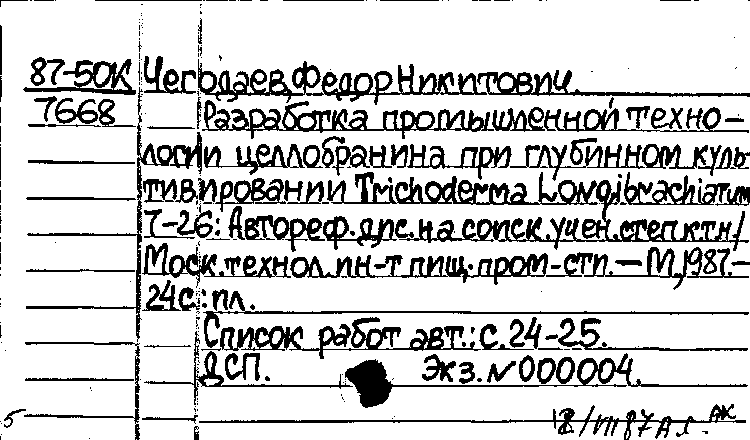 87-50К Чегодаев, Федор Никитович.
7668 Разработка промышленной техно-
логии целлобранина при глубинном куль
тивировании Trichoderma Longibrachiatum
7-26: Автореф. дис. на соиск. учен. степ к.т.н/
Моск. технол. ин-т пищ. пром-сти. — М, 1987. —
24с.: ил.
Список работ авт.: с. 24-25.
ДСП. Экз. N 000004.
5